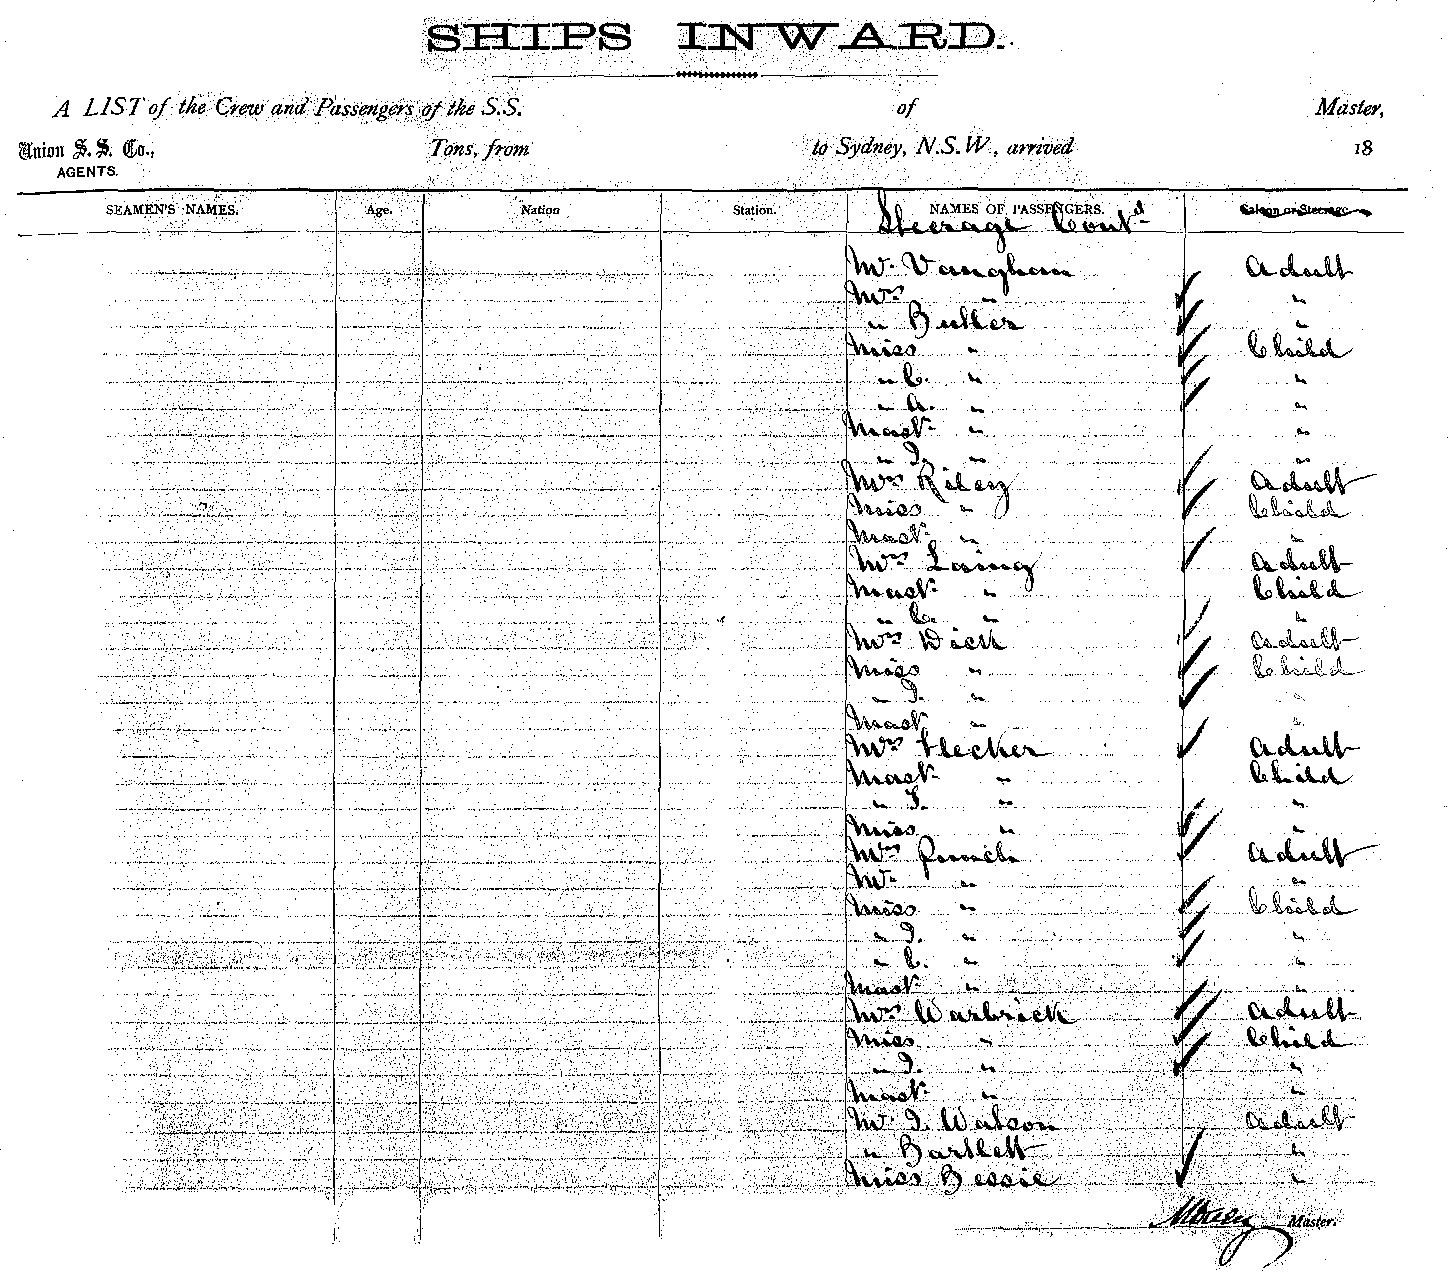 SHIPS INWARD.
A LIST of the Crew and Passengers of the S.S. of Master,
Union S. S. Co., Tons, from to Sydney, N.S.W., arrived 18
AGENTS.
SEAMEN'S NAMES. Age. Nation Station. NAMES OF PASSENGERS. Saloon or Steerage
Steerage Contd
Mr. Vaughan Adult
Mrs " "
" Butler "
Miss " Child
" C. " "
" A. " "
Mast. " "
" J. " "
Mrs Riley Adult
Miss " Child
Mast. " "
Mrs Laing Adult
Mast. " Child
" C. " "
Mrs Dick Adult
Miss " Child
" J. " "
Mast. " "
Mrs Flecker Adult
Mast. " Child
" J. " "
Miss " "
Mrs Adult
Mr. " "
Miss " Child
" J. " "
" C. " "
Mast. " "
Mrs Warbrick Adult
Miss " Child
" J. " "
Mast. " "
Mr. J. Watson Adult
" Bartlett "
Miss Bessie "
Master.